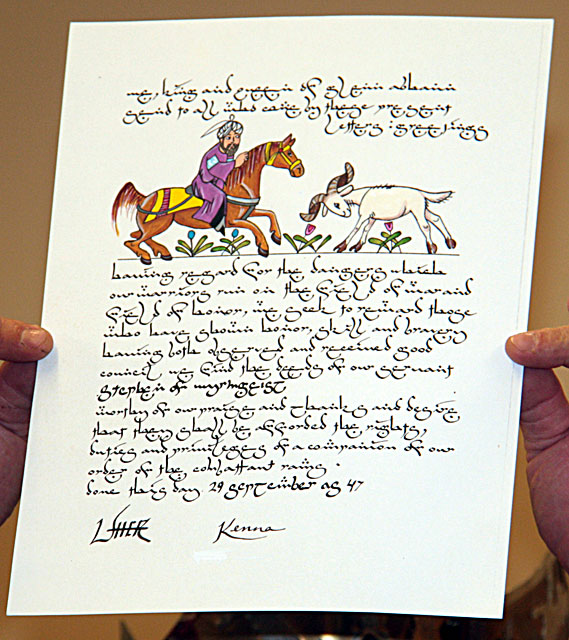 we, king and queen of glenn abhann
send to all who come by these present
letters : greetings
having regard for the dangers which
our warriors run on the field of war and
field of honor, we seek to reward those
who have shown honor, skill and bravery
having both observed and received good
council we find the deeds of our servant
Stephen of
worthy of our praise and thanks and desire
that they shall be afforded the rights,
duties and privileges of a companion of our
order of the, combattant
done this day 29 september as 47
Kenna